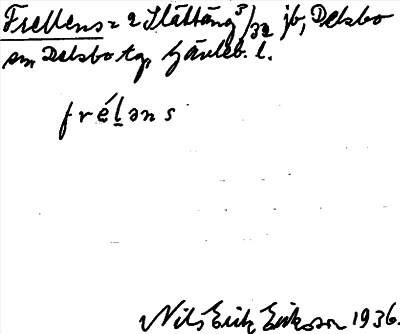 Frellens = 2 Slättäng 3/32 jb, Delsbo
sn Delsbo tg, Gävleb. l.
fréləns
Nils Erik Eriksson 1936.